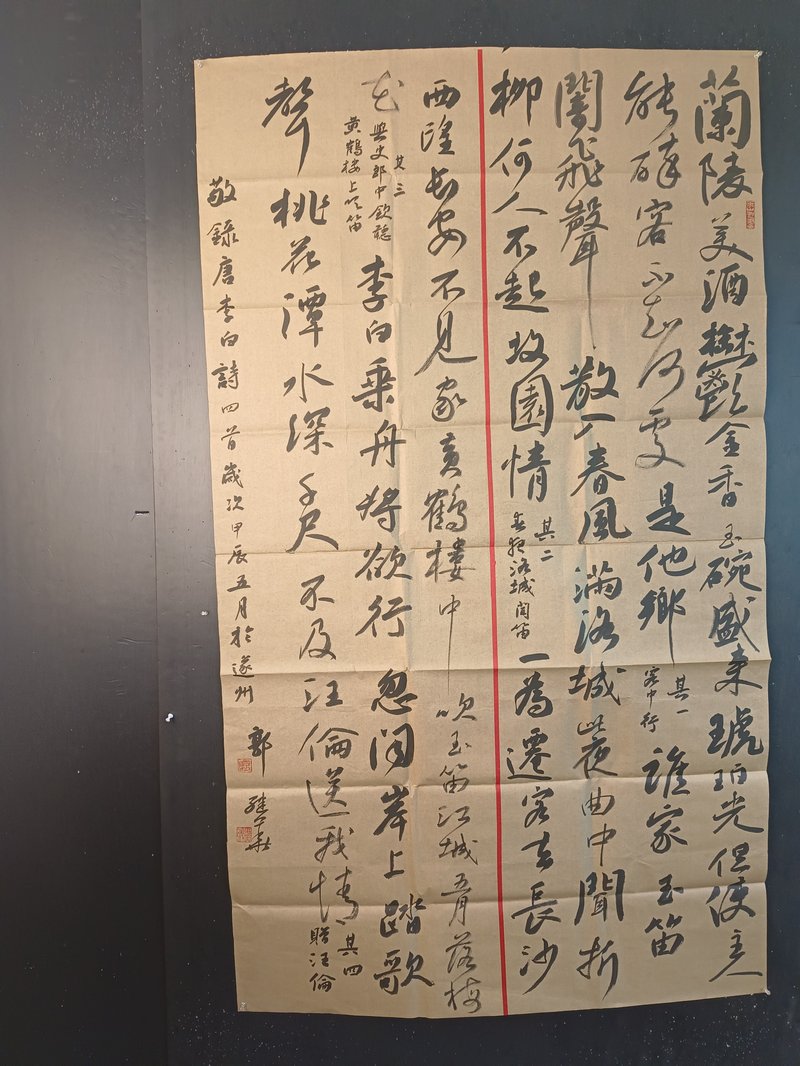 蘭陵美酒鬱金香玉碗盛来琥珀光但使主人
能醉客不知何處是他鄉
其一
客中行
誰家玉笛
闇飛聲散入春風滿洛城此夜曲中聞折
柳何人不起故園情
其二
春夜洛城聞笛
一為遷客去長沙
西望長安不見家黃鶴樓中吹玉笛江城五月落梅
花
其三
與史郎中欽聽
黃鶴樓上吹笛
李白乘舟將欲行忽聞岸上踏歌
聲桃花潭水深千尺不及汪倫送我情
其四
贈汪倫
敬錄唐李白詩四首歲次甲辰五月於遂州郭